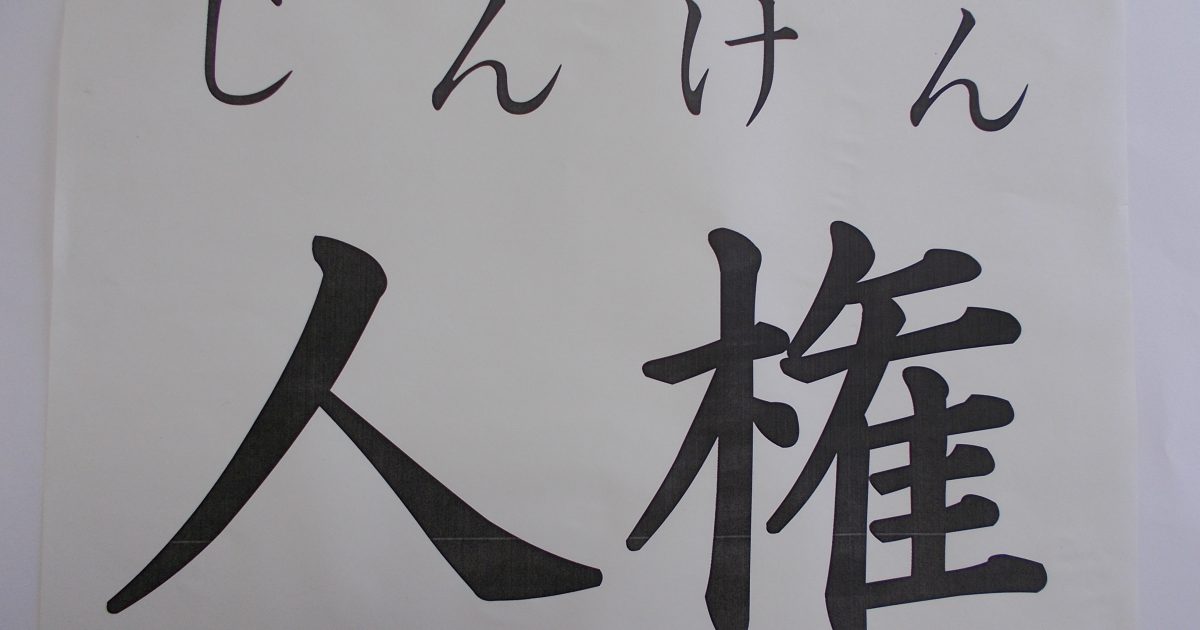 じんけん
人権